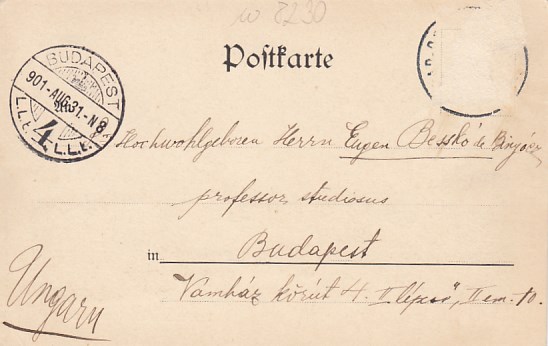 w 8230
Postkarte
BUDAPEST
901-AUG.31.-N8
4
L.L.t. L.L.t.
Hochwohlgeboren Herrn Eugen Besskó de
professor studiosus
in Budapest
Vámház körút 4. II lépcső, II em. 10.
Ungarn